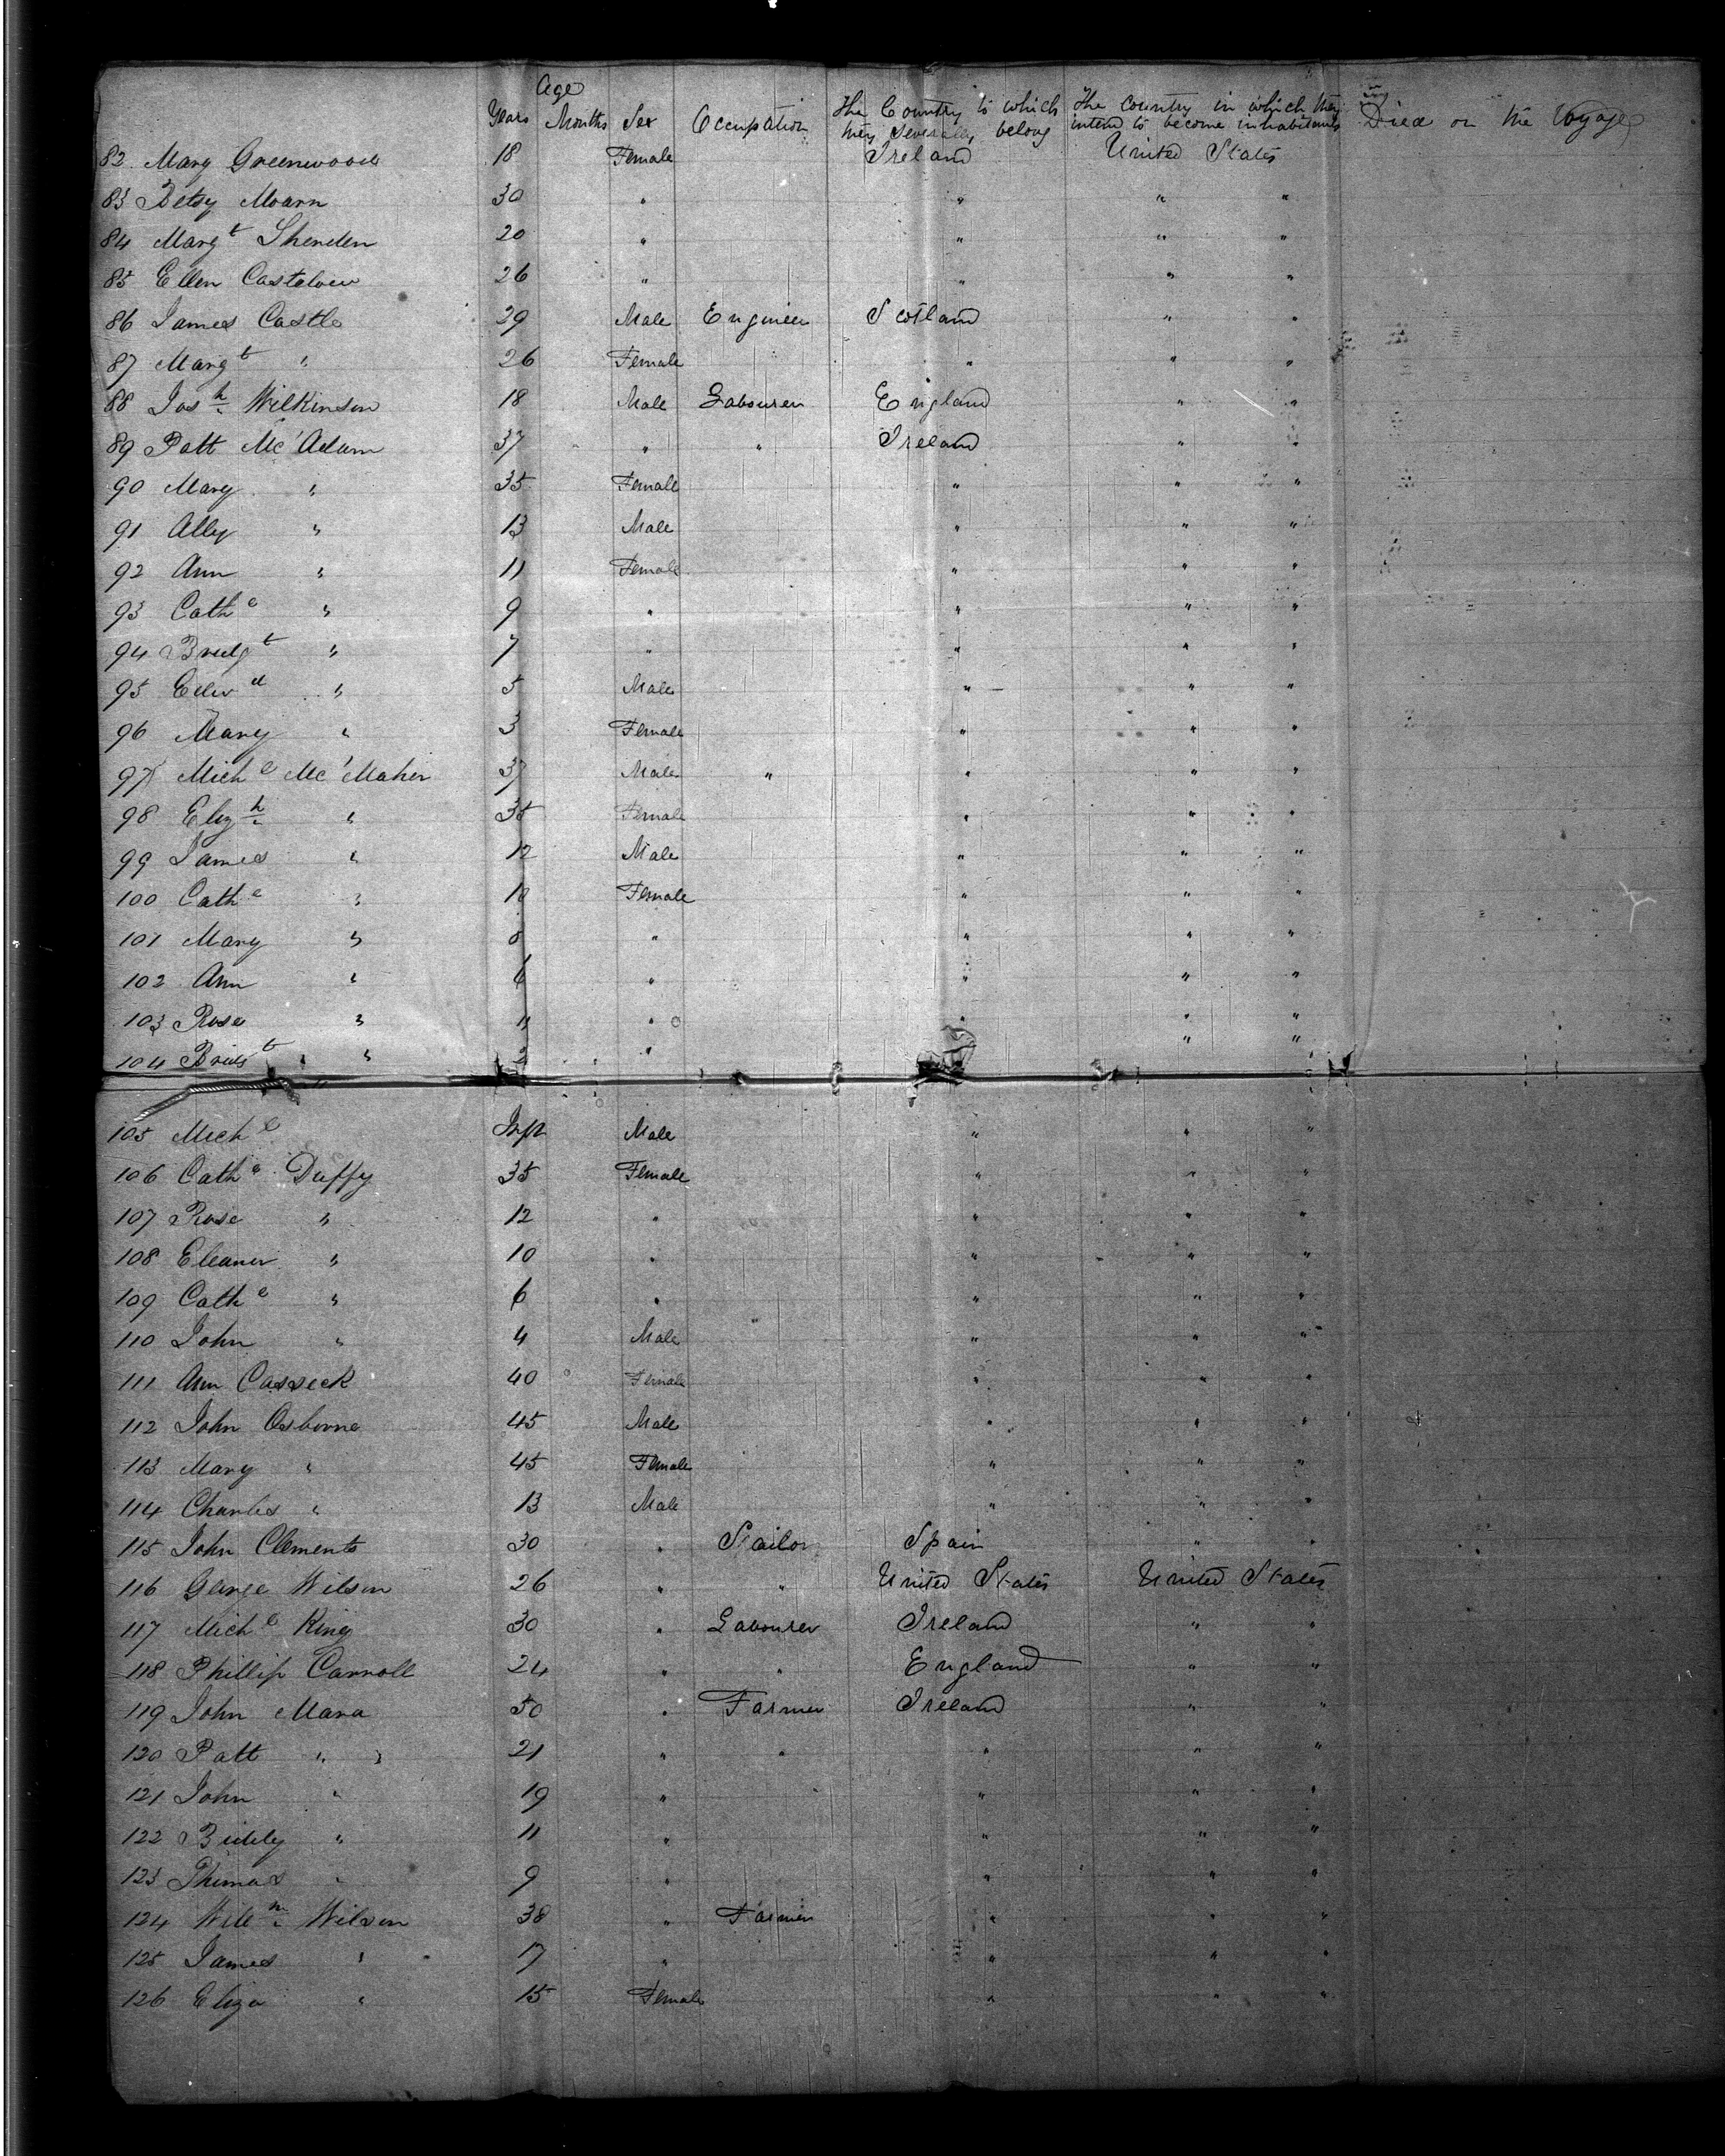 Age
Years Months Sex Occupation The Country to which they severally belong The country in which they intend to become inhabitants Died on the Voyage
82 Mary Greenwood 18 Female Ireland United States
83 Betsy Moarn 30 " " " "
84 Margt Sherden 20 " " " "
85 Ellen Casteloew 26 " " " "
86 James Castle 29 Male Engineer Scotland " "
87 Margt " 26 Female " " "
88 Josh Wilkinson 18 Male Labourer England " "
89 Patt Mc'Adam 37 " " Ireland " "
90 Mary " 35 Female " " "
91 Ally " 13 Male " " "
92 Ann " 11 Female " " "
93 Cathe " 9 " " " "
94 Bridgt " 7 " " " "
95 Edwd " 5 Male " " "
96 Mary " 3 Female " " "
97 Michl Mc'Maher 37 Male " " " "
98 Elizh " 35 Female " " "
99 James " 12 Male " " "
100 Cathe " 10 Female " " "
101 Mary " 8 " " " "
102 Ann " 6 " " " "
103 Rose " 4 " " " "
104 Bridt " " 2 " " "
105 Michl Inft Male " " "
106 Cathe Duffy 35 Female " " "
107 Rose " 12 " " " "
108 Eleanor " 10 " " " "
109 Cathe " 6 " " " "
110 John " 4 Male " " "
111 Ann Casseck 40 Female " " "
112 John Osborne 45 Male " " "
113 Mary " 45 Female " " "
114 Charles " 13 Male " " "
115 John Clements 30 " Sailor Spain " "
116 George Wilson 26 " " United States United States
117 Michl King 30 " Labourer Ireland " "
118 Phillip Carroll 24 " " England " "
119 John Mara 50 " Farmer Ireland " "
120 Patt " 21 " " " " "
121 John " 19 " " " "
122 Biddy " 11 " " " "
123 Thomas " 9 " " " "
124 Willm Wilson 38 " Farmer " " "
125 James " 17 " " " "
126 Eliza " 15 Female " " "